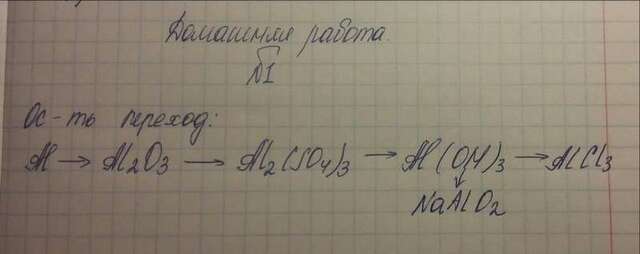 Домашняя работа.
№1
Ос-ть переход:
Al → Al2O3 → Al2(SO4)3 → Al(OH)3 → AlCl3
↓
NaAlO2